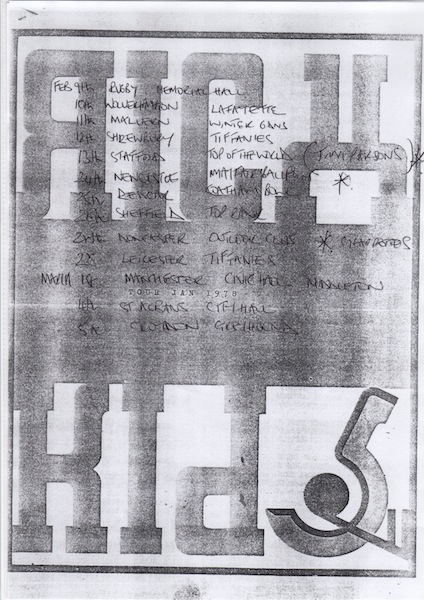 RICH
FEB 9th RUGBY MEMORIAL HALL
10th WOLVERHAMPTON LAFAYETTE
11th MALVERN WINTER GDNS
12th SHREWSBURY TIFFANIES
13th STAFFORD TOP OF THE WORLD (JIM PARSONS) *
24th NEWCASTLE MAYFAIR BALLROOM *
REDCAR COATHAM BOWL
SHEFFIELD TOP RANK
DONCASTER OUTLOOK CLUB *
28 LEICESTER TIFFANIES
MARCH 1st MANCHESTER CIVIC HALL MIDDLETON
TOUR JAN 1978
4th ST ALBANS CITY HALL
5th CROYDON GREYHOUND
KIds